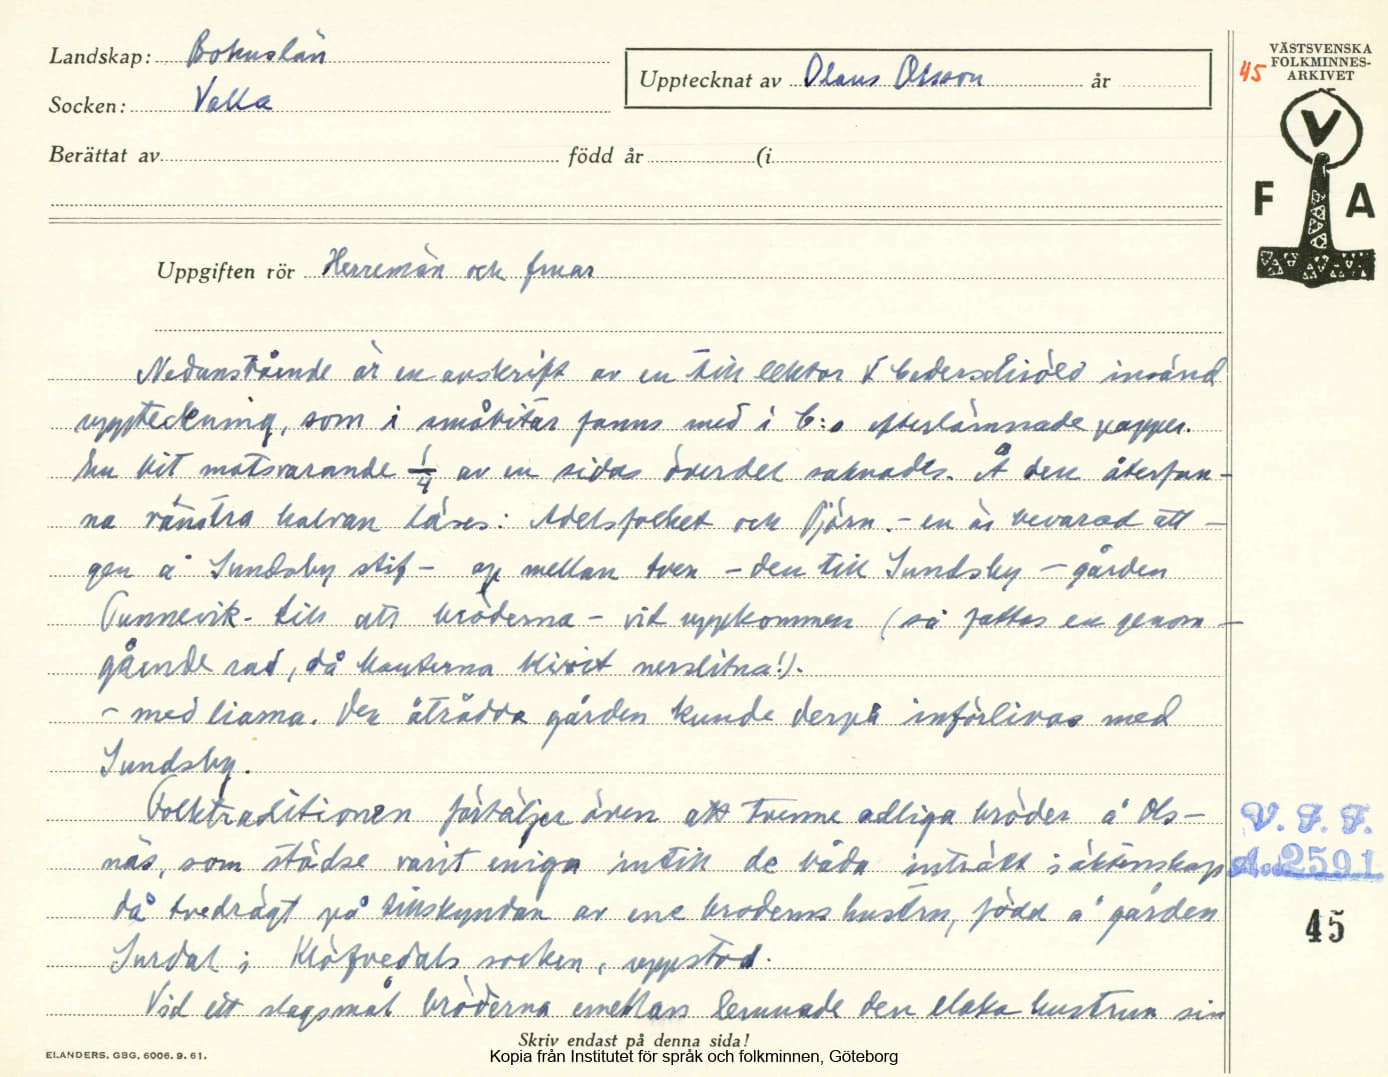 Landskap: Bohuslän
Socken: Valla
Upptecknat av Olaus Olsson år
Berättat av född år (i
Uppgiften rör Herremän och fruar
VÄSTSVENSKA
FOLKMINNES-
ARKIVET
45
V
F A
Nedanstående är en avskrift av en till lektor Cederschiöld insänd
uppteckning, som i småbitar fanns med i C:s efterlämnade papper.
En bit motsvarande 1/4 av en sidas överdel saknades. Å den återfun-
na vänstra halvan läses: Adelsfolket och Tjörn. - en är bevarad att -
gen å Sundsby stif - mellan tven - den till Sundsby - gården
Tunnevik - till att bröderna - vid uppkommen (så fattas en genom-
gående rad, då kanterna blivit nerslitna!).
- med liarna. Den åtrådda gården kunde derpå införlivas med
Sundsby.
Folktraditionen förtäljer även att tvenne adliga bröder å Ols-
näs, som städse varit eniga intill de båda inträdt i äktenskap
då tvedrägt på tillskyndan av ene broderns hustru, född å gården
Surdal i Klöfvedals socken, uppstod.
Vid ett slagsmål bröderna emellan lemnade den elaka hustrun sin
V. F. F.
A.d 2591
45
Skriv endast på denna sida!
ELANDERS, GBG, 6006. 9. 61.
Kopia från Institutet för språk och folkminnen, Göteborg